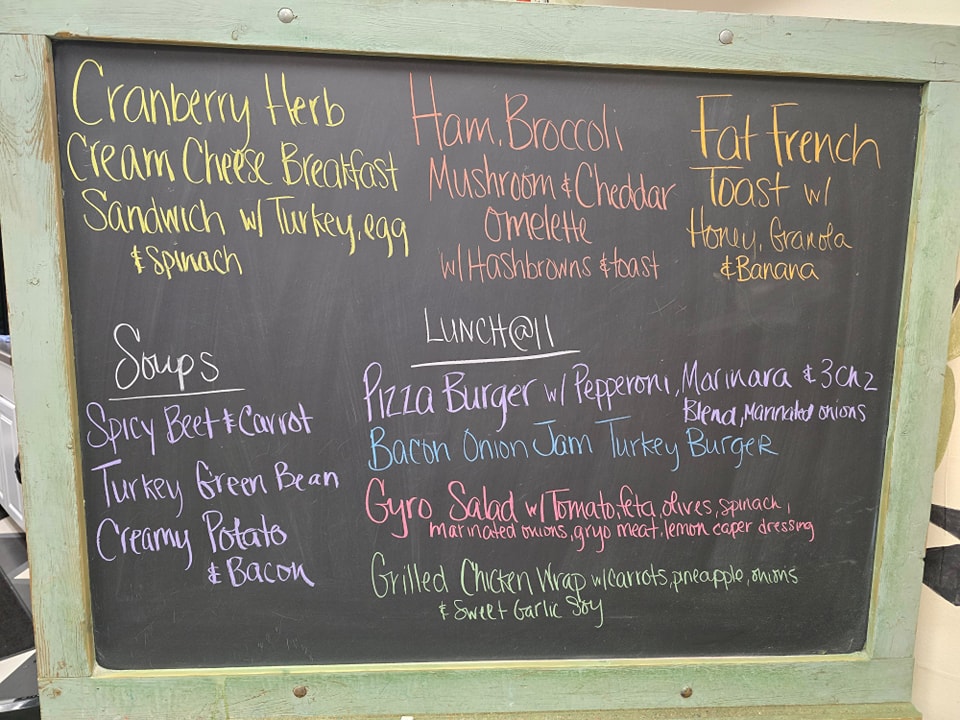 Cranberry Herb
Cream Cheese Breakfast
Sandwich w/ Turkey, egg
& Spinach
Ham, Broccoli
Mushroom & Cheddar
Omelette
w/ Hashbrowns & toast
Fat French
Toast w/
Honey, Granola
& Banana
Soups
Spicy Beet & Carrot
Turkey Green Bean
Creamy Potato
& Bacon
LUNCH@11
Pizza Burger w/ Pepperoni, Marinara & 3 Chz
Blend, Marinated onions
Bacon Onion Jam Turkey Burger
Gyro Salad w/ Tomato, feta, olives, spinach,
marinated onions, gryo meat, lemon caper dressing
Grilled Chicken Wrap w/ carrots, pineapple, onions
& Sweet Garlic Soy